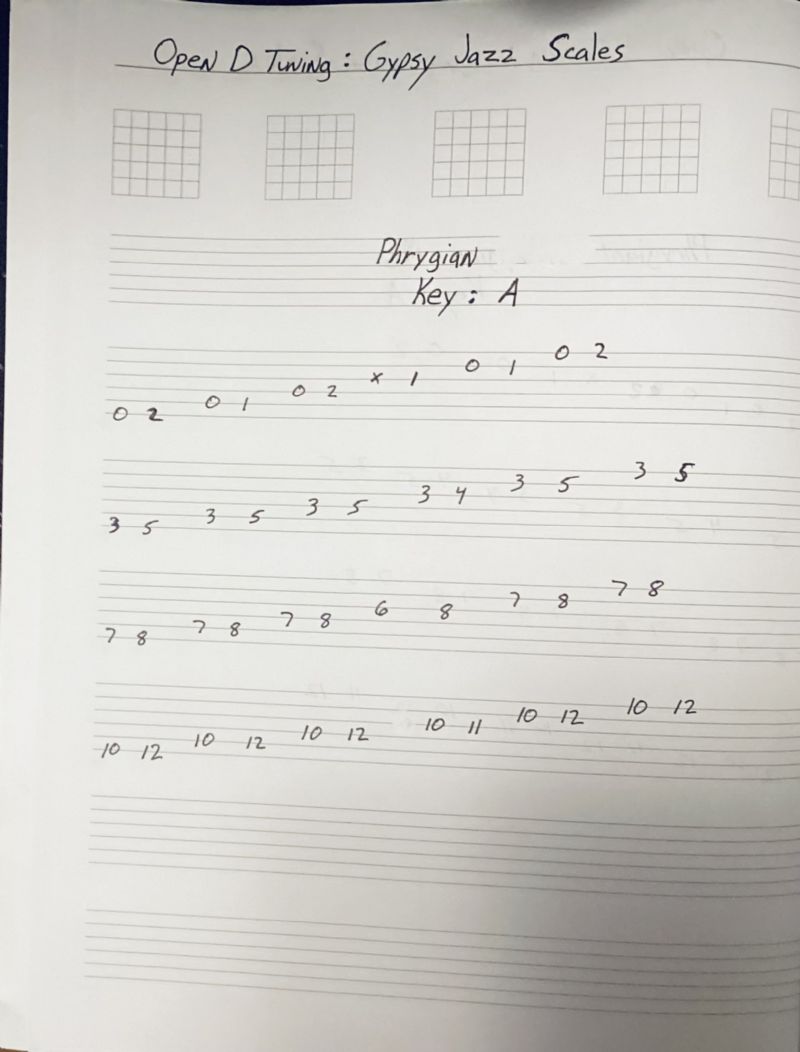 Open D Tuning: Gypsy Jazz Scales
Phrygian
Key: A
0 2 0 1 0 2 x 1 0 1 0 2
3 5 3 5 3 5 3 4 3 5 3 5
7 8 7 8 7 8 6 8 7 8 7 8
10 12 10 12 10 12 10 11 10 12 10 12